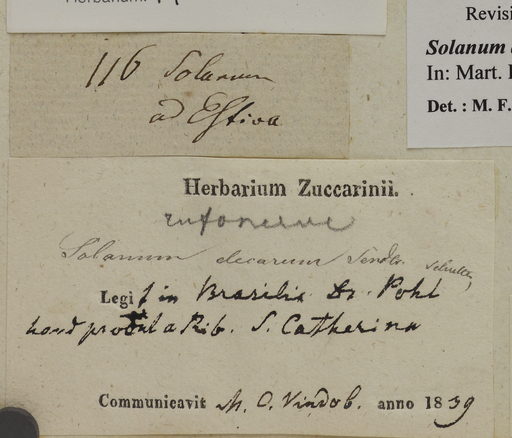 Herbarium.
Revisi
Solanum
In: Mart.
Det. : M. F.
116 Solanum
ad Estiva
Herbarium Zuccarinii.
rufonerve
Solanum decorum Sendtn.
Legit in Brasilia Dr. Pohl
haud procul a Rib. S. Catherina
Communicavit M. C. Vindob. anno 1839